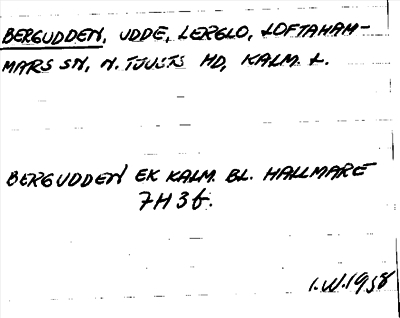 BERGUDDEN, UDDE, LERGLO, LOFTAHAM-
MARS SN, N. TJUSTS HD, KALM. L.
BERGUDDEN EK KALM. BL. HALLMARE
7H3f.
I.W.1958